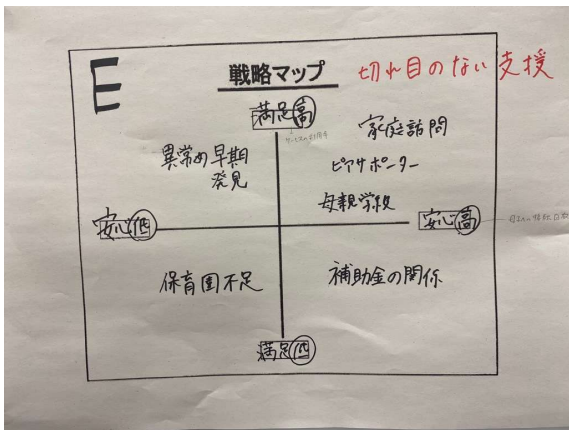 E
戦略マップ
切れ目のない支援
満足高
家庭訪問
異常の早期
発見
ピアサポーター
母親学級
安心低
安心高
保育園不足
補助金の関係
満足低